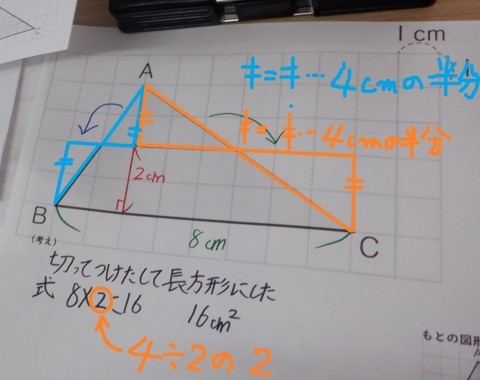 1 cm
A
キ=キ…4cmの半分
キ=キ…4cmの半分
2cm
B
8cm
C
(考え)
切ってつけたして長方形にした
式 8×2=16 16cm²
4÷2の2
もとの図形